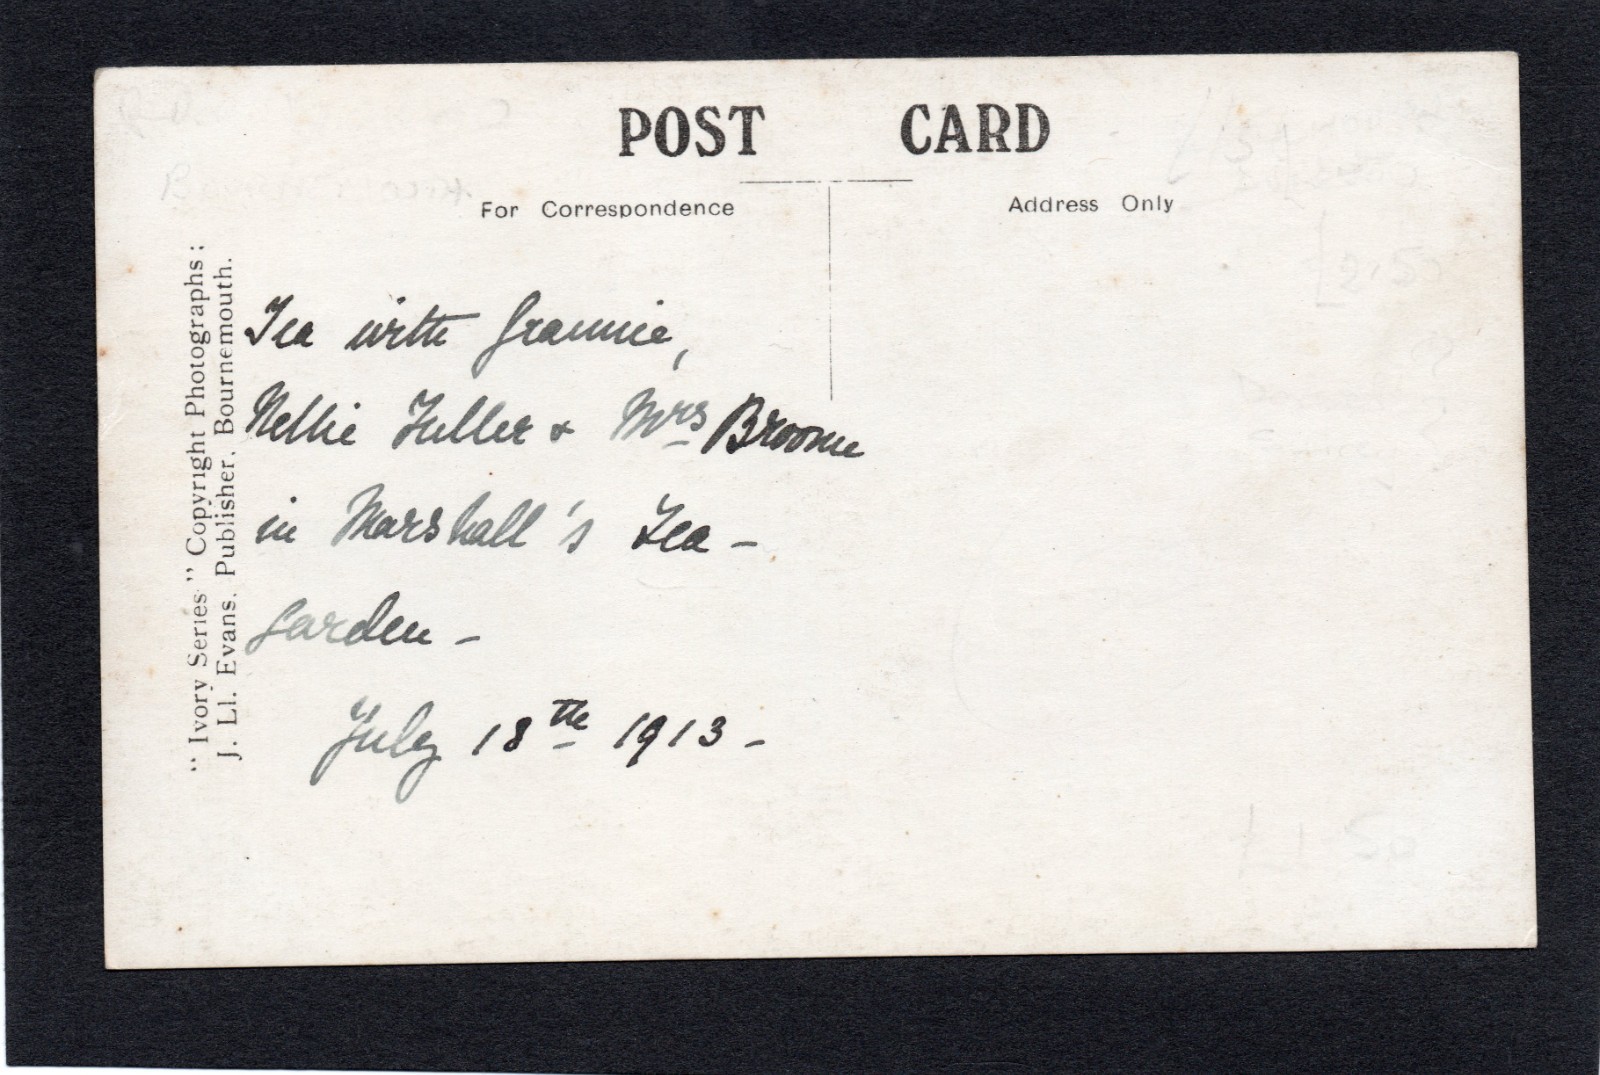 POST CARD
For Correspondence
Address Only
" Ivory Series " Copyright Photographs :
J. Ll. Evans, Publisher, Bournemouth.
Tea with Grannie,
Nellie Fuller & Mrs Broome
in Marshall's Tea -
Garden -
July 18th 1913 -